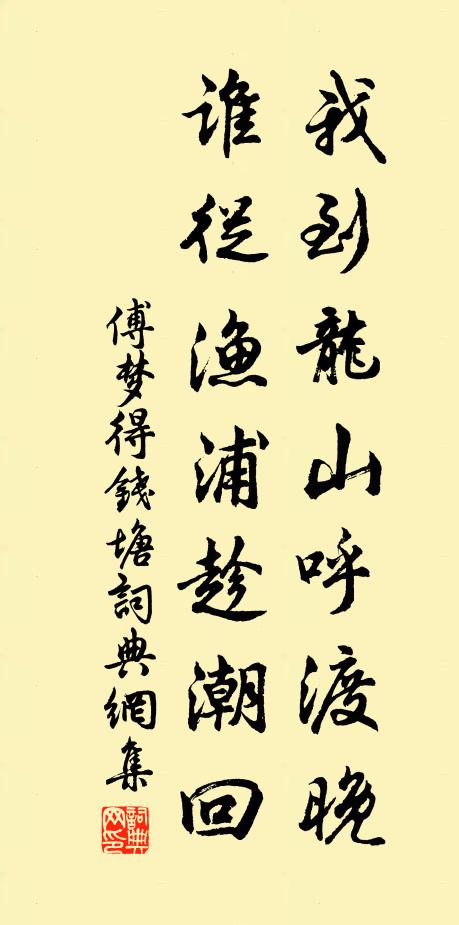 我到龍山呼渡晚
誰從漁浦趁潮回
傅梦得錢塘詞典網集
詞典网印